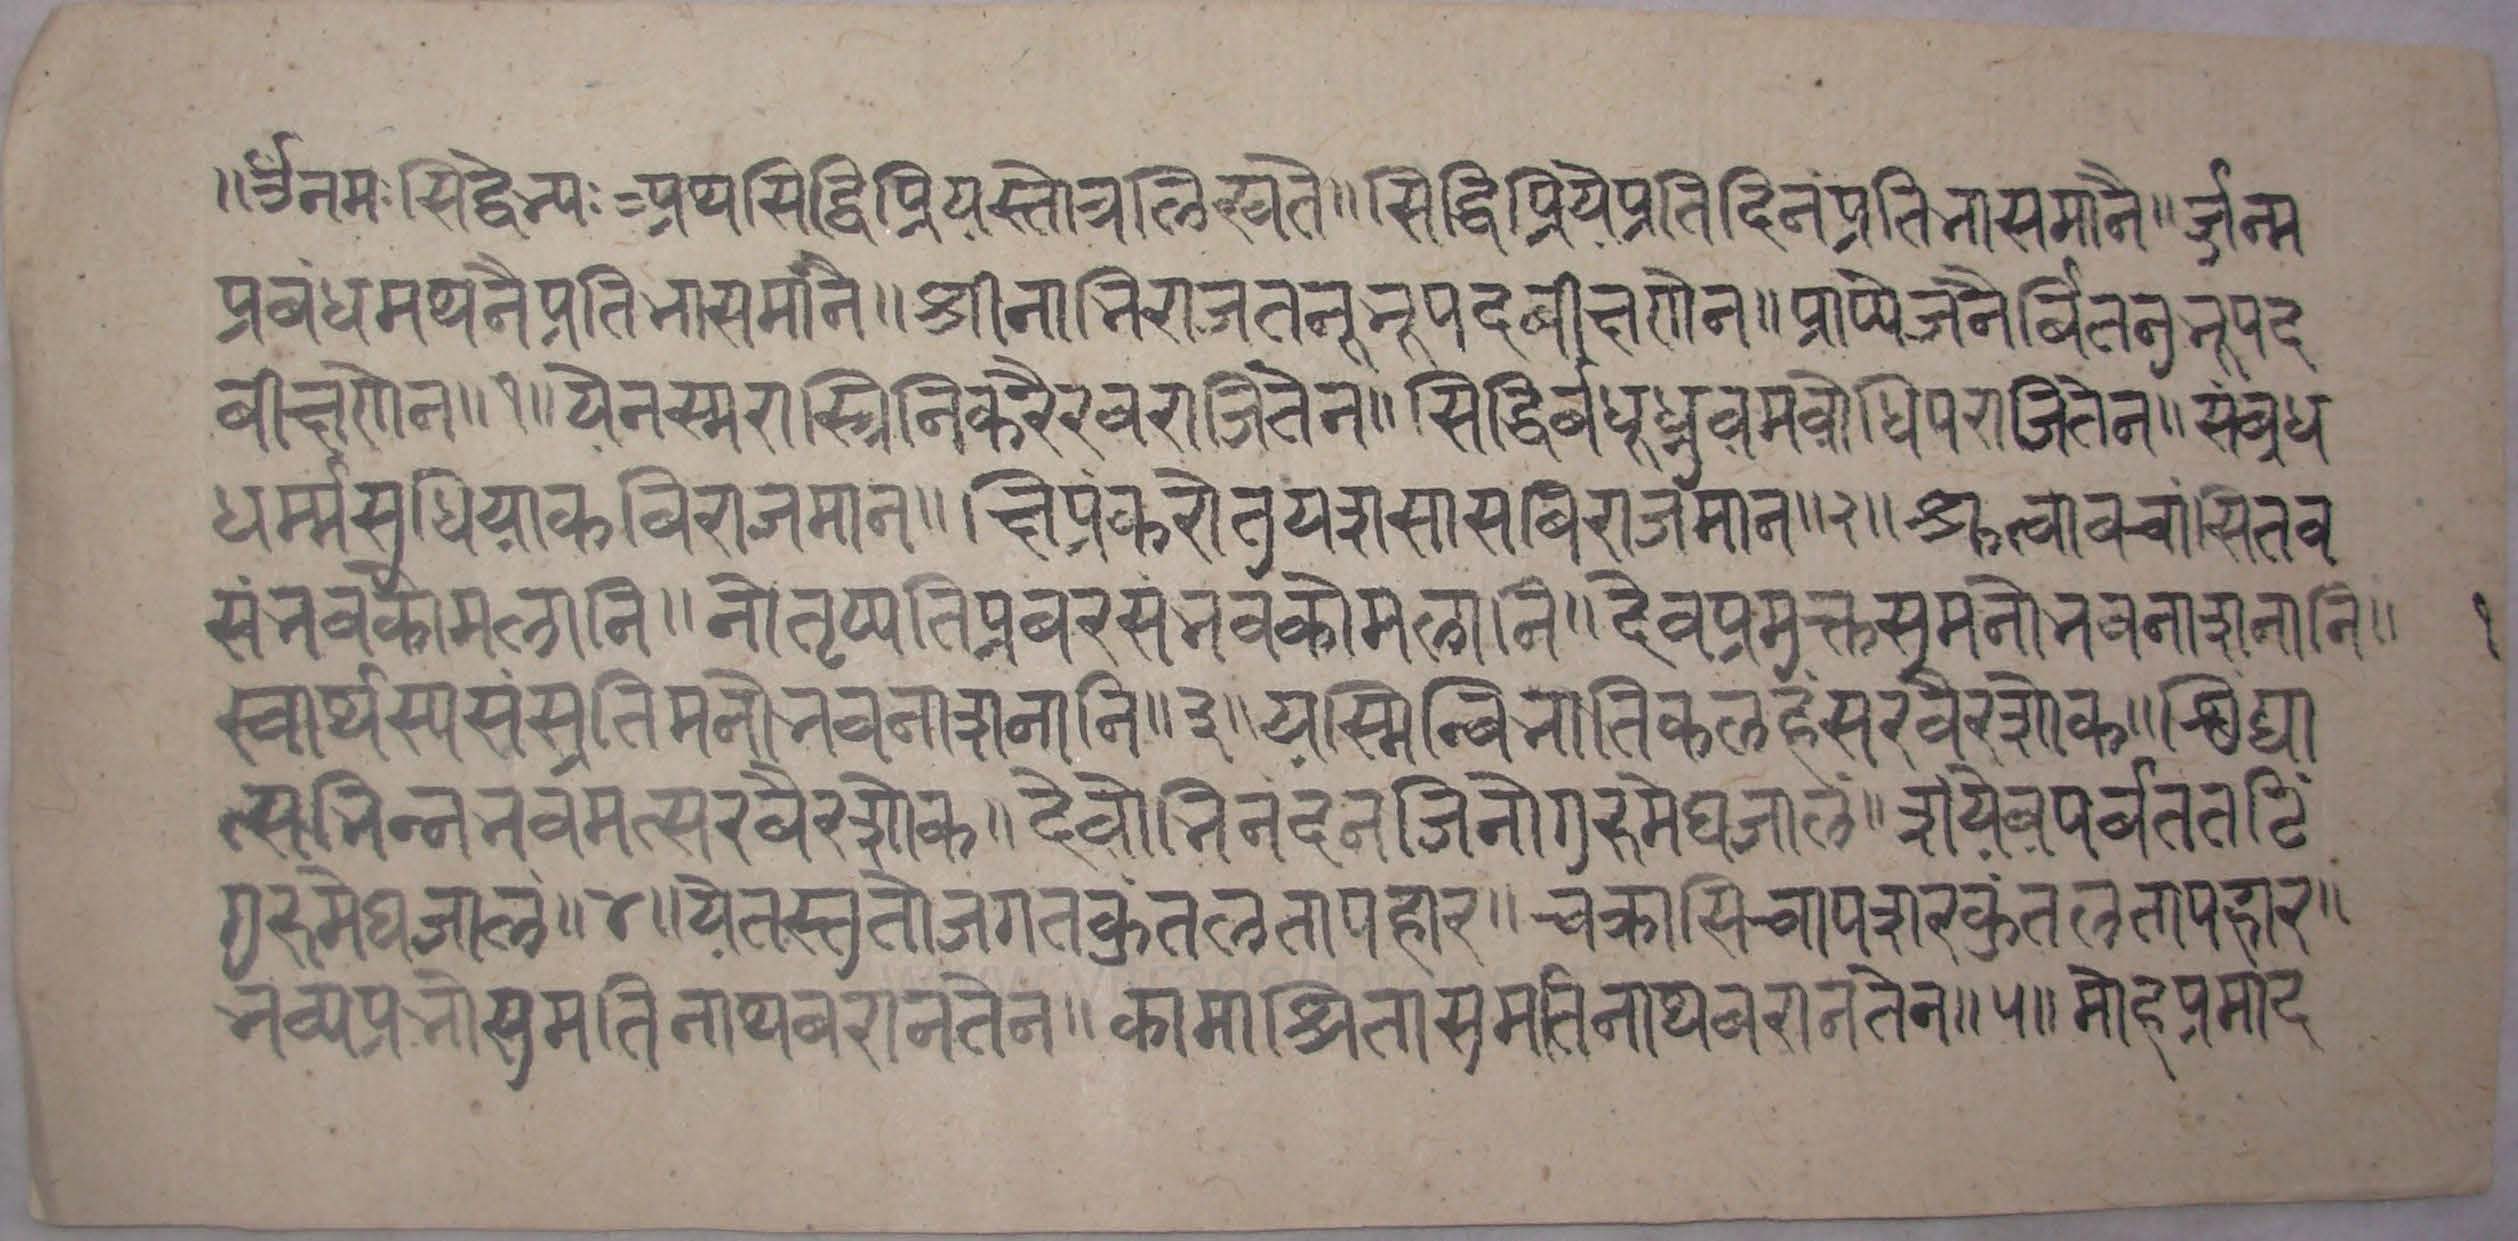 ॥ॐनमः सिद्धेभ्यः अथ सिद्धिप्रियस्तोत्रलिख्यते॥ सिद्धिप्रियैप्रतिदिनंप्रतिभासमानै॥र्जन्म
प्रबंधमथनैप्रतिभासमानै॥ श्रीनाभिराजतनूभूपदबीक्षणेन॥ प्रापेजनैर्बितनुभूपद
बीक्षणेन॥१॥ येनस्मरास्त्रिनिकरैरवराजितेन॥ सिद्धिर्बधूध्रुवमबोधिपराजितेन॥ संबृध
धर्म्मसुधियाकबिराजमान॥ क्षिप्रंकरोतुयशसासबिराजमान॥२॥ श्रुत्वावचांसितव
संभवकोमलानि॥ नोतृप्यतिप्रबरसंभवकोमलानि॥ देवप्रमुक्तसुमनोभवनाशनानि॥ १
स्वार्थस्यसंसृतिमनोभवनाशनानि॥३॥ यस्मिन्बिभातिकलहंसरवैरशोक॥ छिंद्या
त्सभिन्नभवमत्सरवैरशोक॥ देवोभिनंदनजिनोगुरुमेघजालं॥ शंयेबपर्वततटिं
गुरुमेघजालं॥४॥ येतस्तुतोजगतकुंतलतापहार॥ चक्रासिचापशरकुंतलतापहार॥
भव्यप्रभोसुमतिनाथबरानतेन॥ कामाश्रितासुमतिनाथबरानतेन॥५॥ मोहप्रमाद